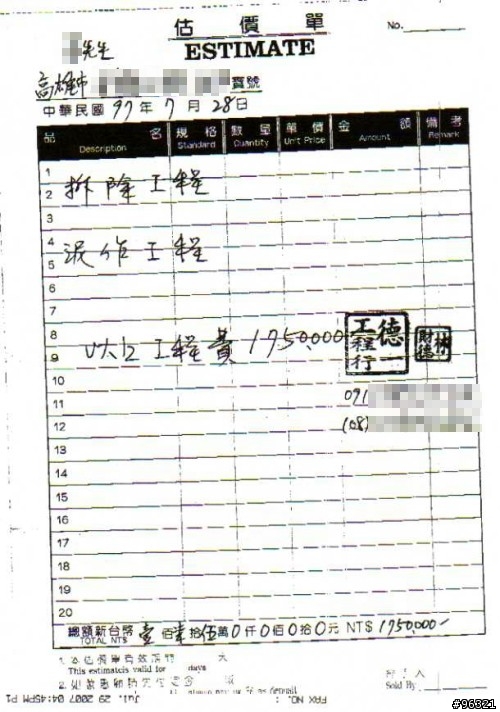 估價單
No.
ESTIMATE
先生
高雄市 寶號
中華民國 97年 7月 28日
品名 規格 數量 單價 金額 備考
Description Standard Quantity Unit Price Amount Remark
1
2 拆除工程
3
4
5 泥作工程
6
7
8
9 以上工程費 1750,000 德一工程行 林財德
10
11 091
12 (08)
13
14
15
16
17
18
19
20
總額新台幣 壹佰柒拾伍萬0仟0佰0拾0元 NT$ 1750,000-
TOTAL NT$
1.本估價單有效期間 天
This estimate is valid for days
2.如蒙惠顧請先付定金
as deposit
Sold By
JUL 29 2007 04:45PM P1
FAX NO. :
#96321